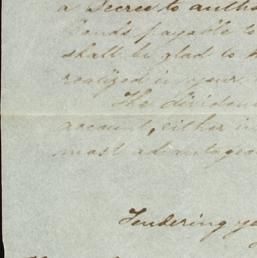 a Decree to autho
bonds payable to
shall be glad to h
realized in your
The dividend
account, either in
most advantageo
Tendering yo